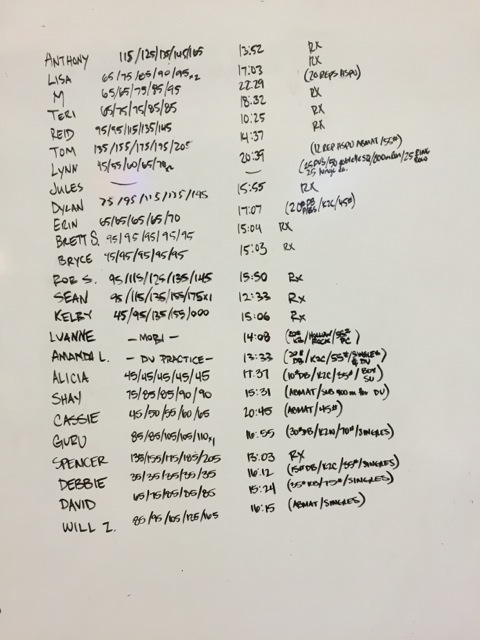 ANTHONY 115/125/135/145/165 13:52 RX
LISA 65/75/85/90/95x2 17:03 RX
M 65/65/75/85/95 22:29 (20 REPS HSPU)
TERI 65/75/75/85/85 18:32 RX
REID 95/95/115/135/145 10:25 RX
TOM 135/155/175/195/205 14:37 RX
LYNN 45/55/60/65/70x2 20:39 (12 REP HSPU ABMAT/55#)
JULES — —
DYLAN 75/95/115/135/145 15:55 RX
ERIN 65/65/65/65/70 17:07 (20# DB /K2C/45#)
BRETT S. 95/95/95/95/95 15:04 RX
BRYCE 75/95/95/135/95 15:03 RX
ROB S. 95/115/125/135/145 15:50 RX
SEAN 95/115/135/155/175x1 12:33 RX
KELBY 45/95/135/55/000 15:06 RX
LVANNE - MOBI - 14:08 (20# /HOLLOW ROCK/55# PC)
AMANDA L. - DU PRACTICE - 13:33 (20# DB/K2C/55#/SINGLES & DU)
ALICIA 45/45/45/45/45 17:37 (10# DB/K2C/35#/BOX SU)
SHAY 75/85/85/90/90 15:31 (ABMAT/SUB 400m for DU)
CASSIE 45/50/55/60/65 20:45 (ABMAT/45#)
GURU 85/85/105/105/110x1 16:55 (30# DB/K2N/70#/SINGLES)
SPENCER 135/155/175/185/205 13:03 RX
DEBBIE 35/35/35/35/35 16:12 (15# DB/K2C/35#/SINGLES)
DAVID 65/75/85/85/85 15:24 (35# KB/75#/SINGLES)
WILL Z. 85/95/105/125/165 16:15 (ABMAT/SINGLES)